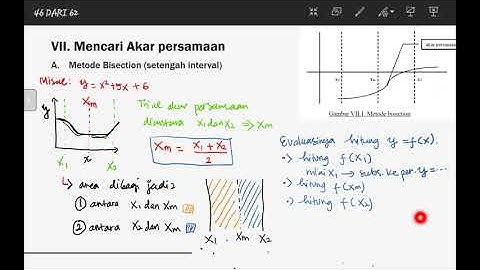 46 DARI 62
VII. Mencari Akar persamaan
A. Metode Bisection (setengah interval)
Misal: y = x² + 5x + 6
y
Xm
X₁ x X₂
Trial akar persamaan
diantara X₁ dan X₂ ⇒ Xm
Xm = X₁ + X₂ / 2
↳ area dibagi jadi 2
① antara X₁ dan Xm
② antara X₂ dan Xm
X₁ Xm X₂
akar persamaan
Gambar VII.1. Metode bisection
Evaluasinya hitung y = f(x).
•> hitung f(X₁)
nilai X₁ → subs. ke per. y = ...
•> hitung f(Xm)
•> hitung f(X₂)